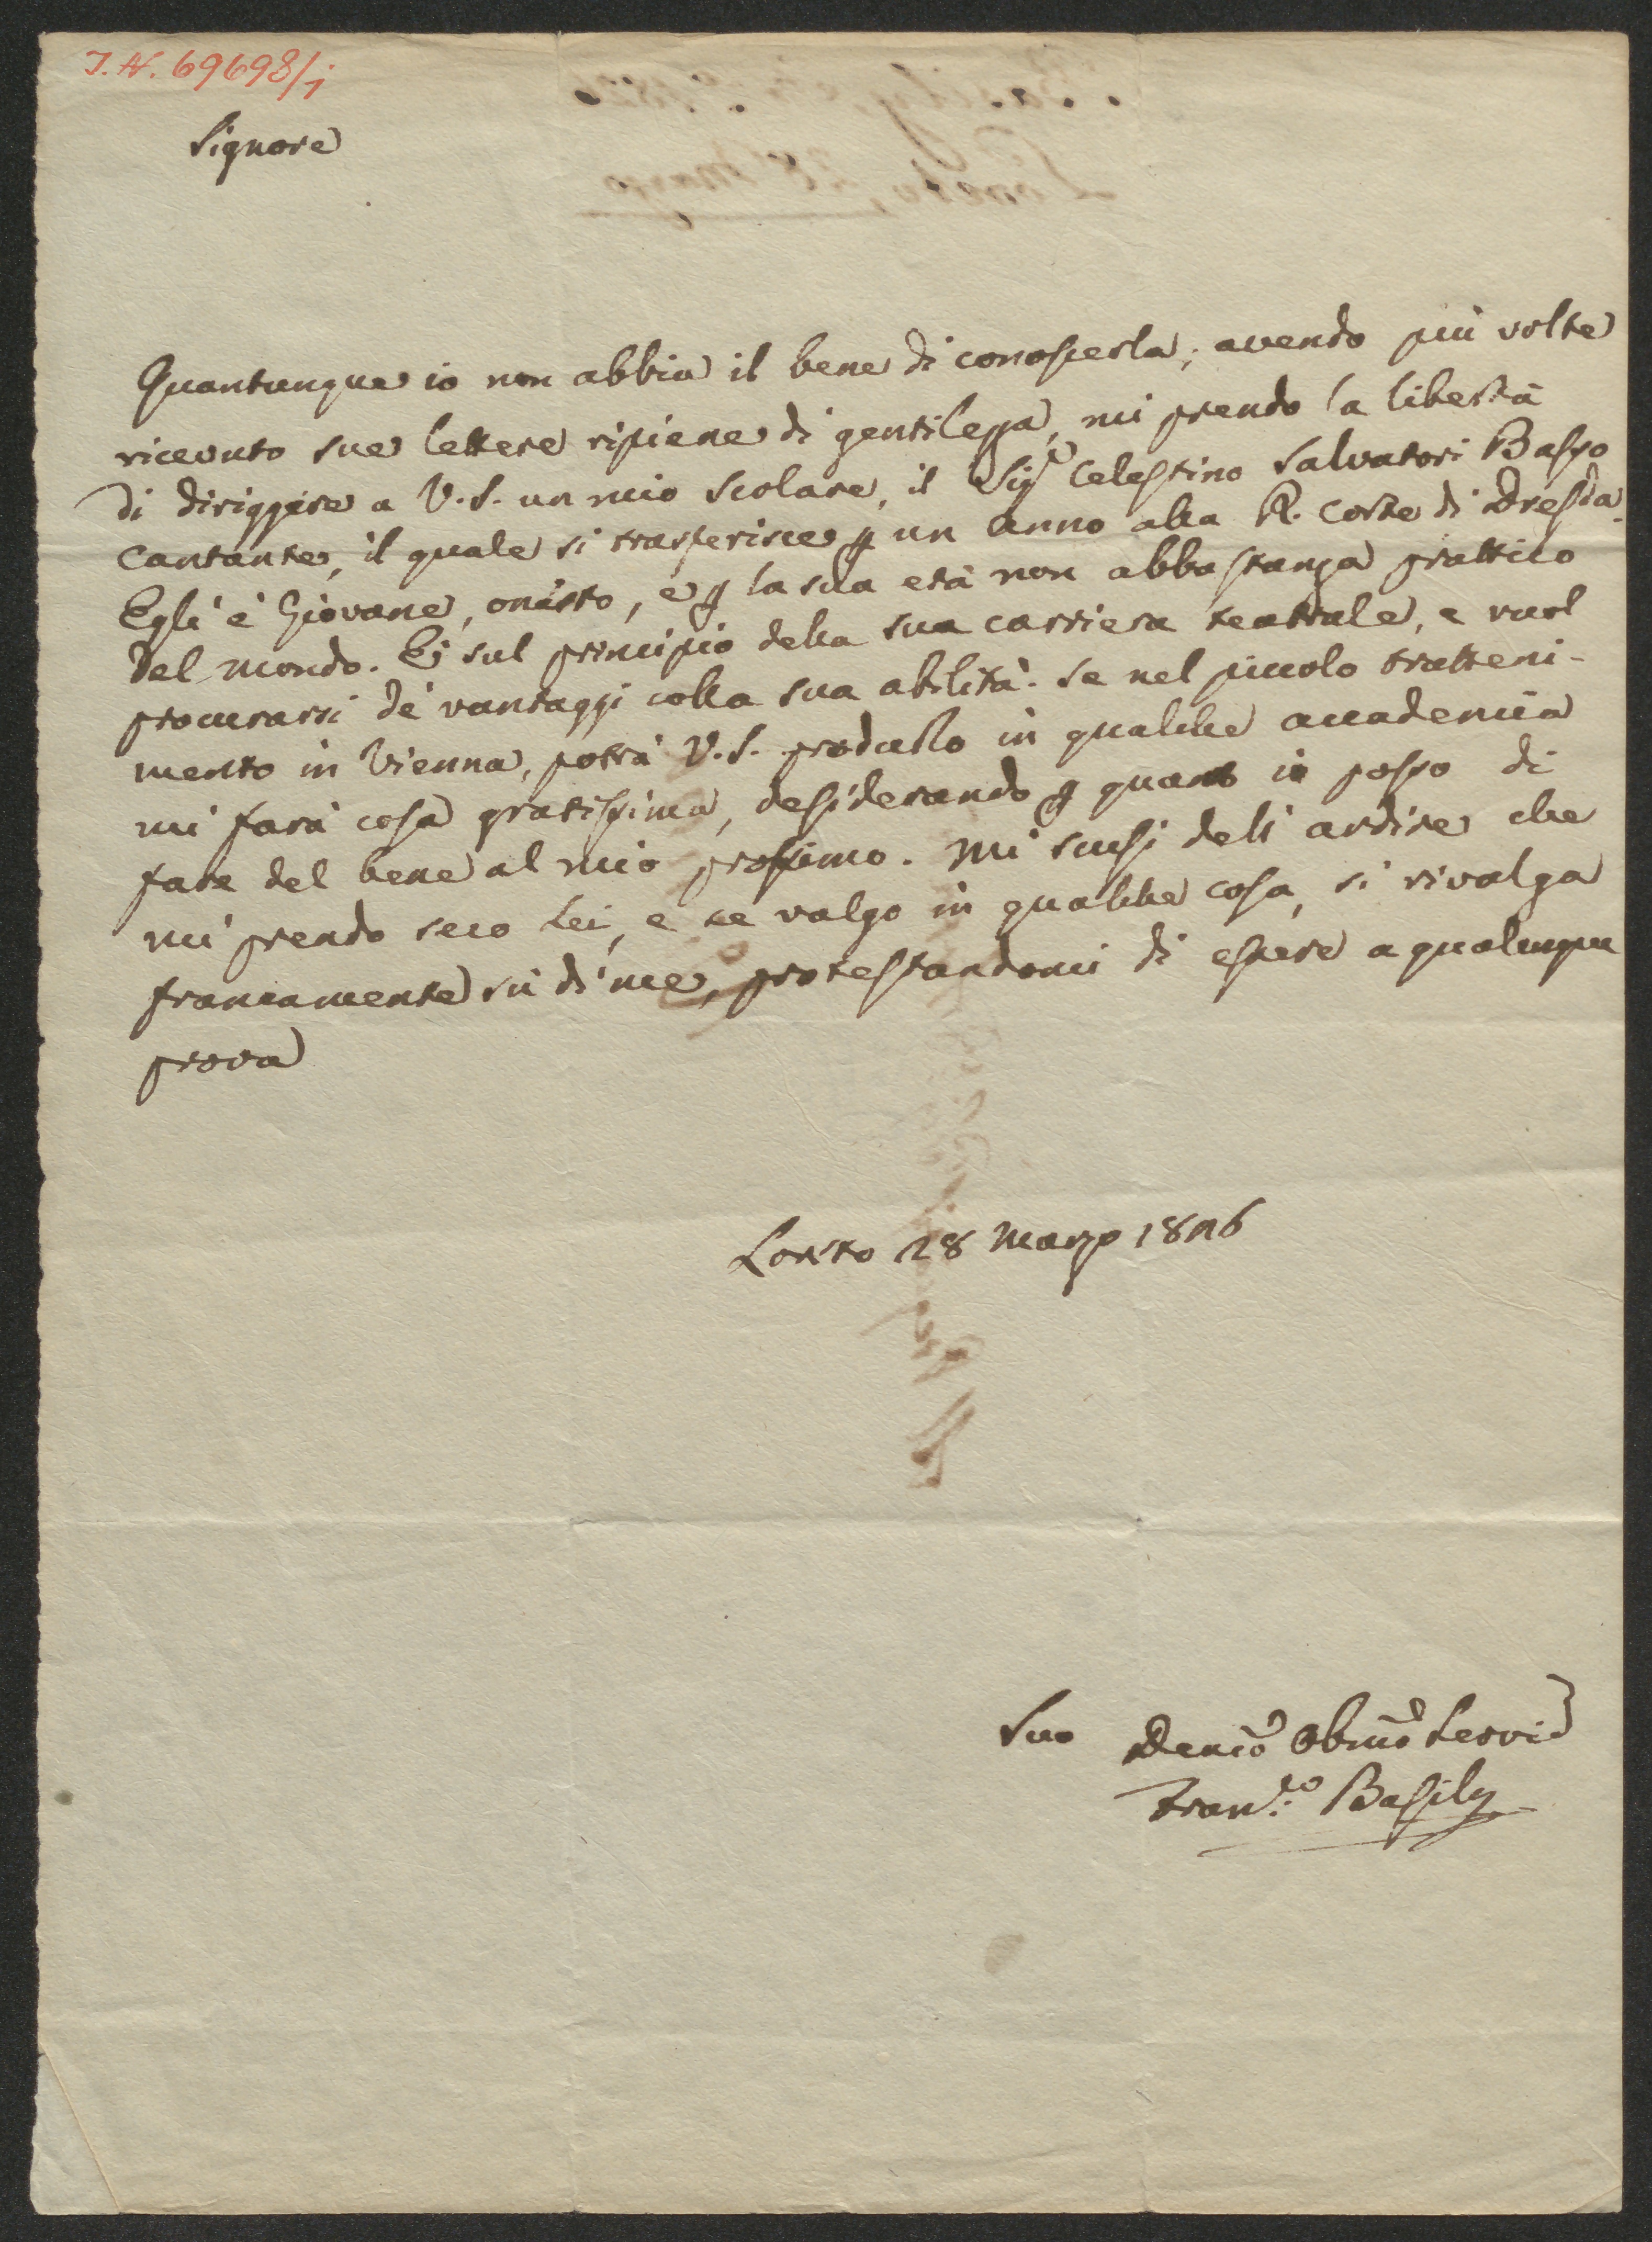 I. N. 69698/1
Signore
Quantunque io non abbia il bene di conoscerla, avendo più volte
ricevuto sue lettere ripiene di gentilezza, mi prendo la libertà
di diriggere a V. S. un mio scolare, il Sigr Celestino Salvatori Basso
Cantante, il quale si trasferisce p un anno alla R. Corte di Dresda.
Egli è Giovane, onesto, e p la sua età non abbastanza prattico
del mondo. Ei sul principio della sua carriera teatrale, e vuol
procurarsi de' vantaggi colla sua abilità. Se nel piccolo tratteni-
mento in Vienna, potrà V. S. produrlo in qualche accademia
mi farà cosa gratissima, desiderando p quanto io posso di
fare del bene al mio prossimo. Mi scusi dell' ardire che
mi prendo seco Lei, e se valgo in qualche cosa, si rivalga
francamente su di me, protestandomi di essere a qualunque
prova
Loreto 28 Marzo 1826
Suo Devmo Obmo Servid
Franco Basily